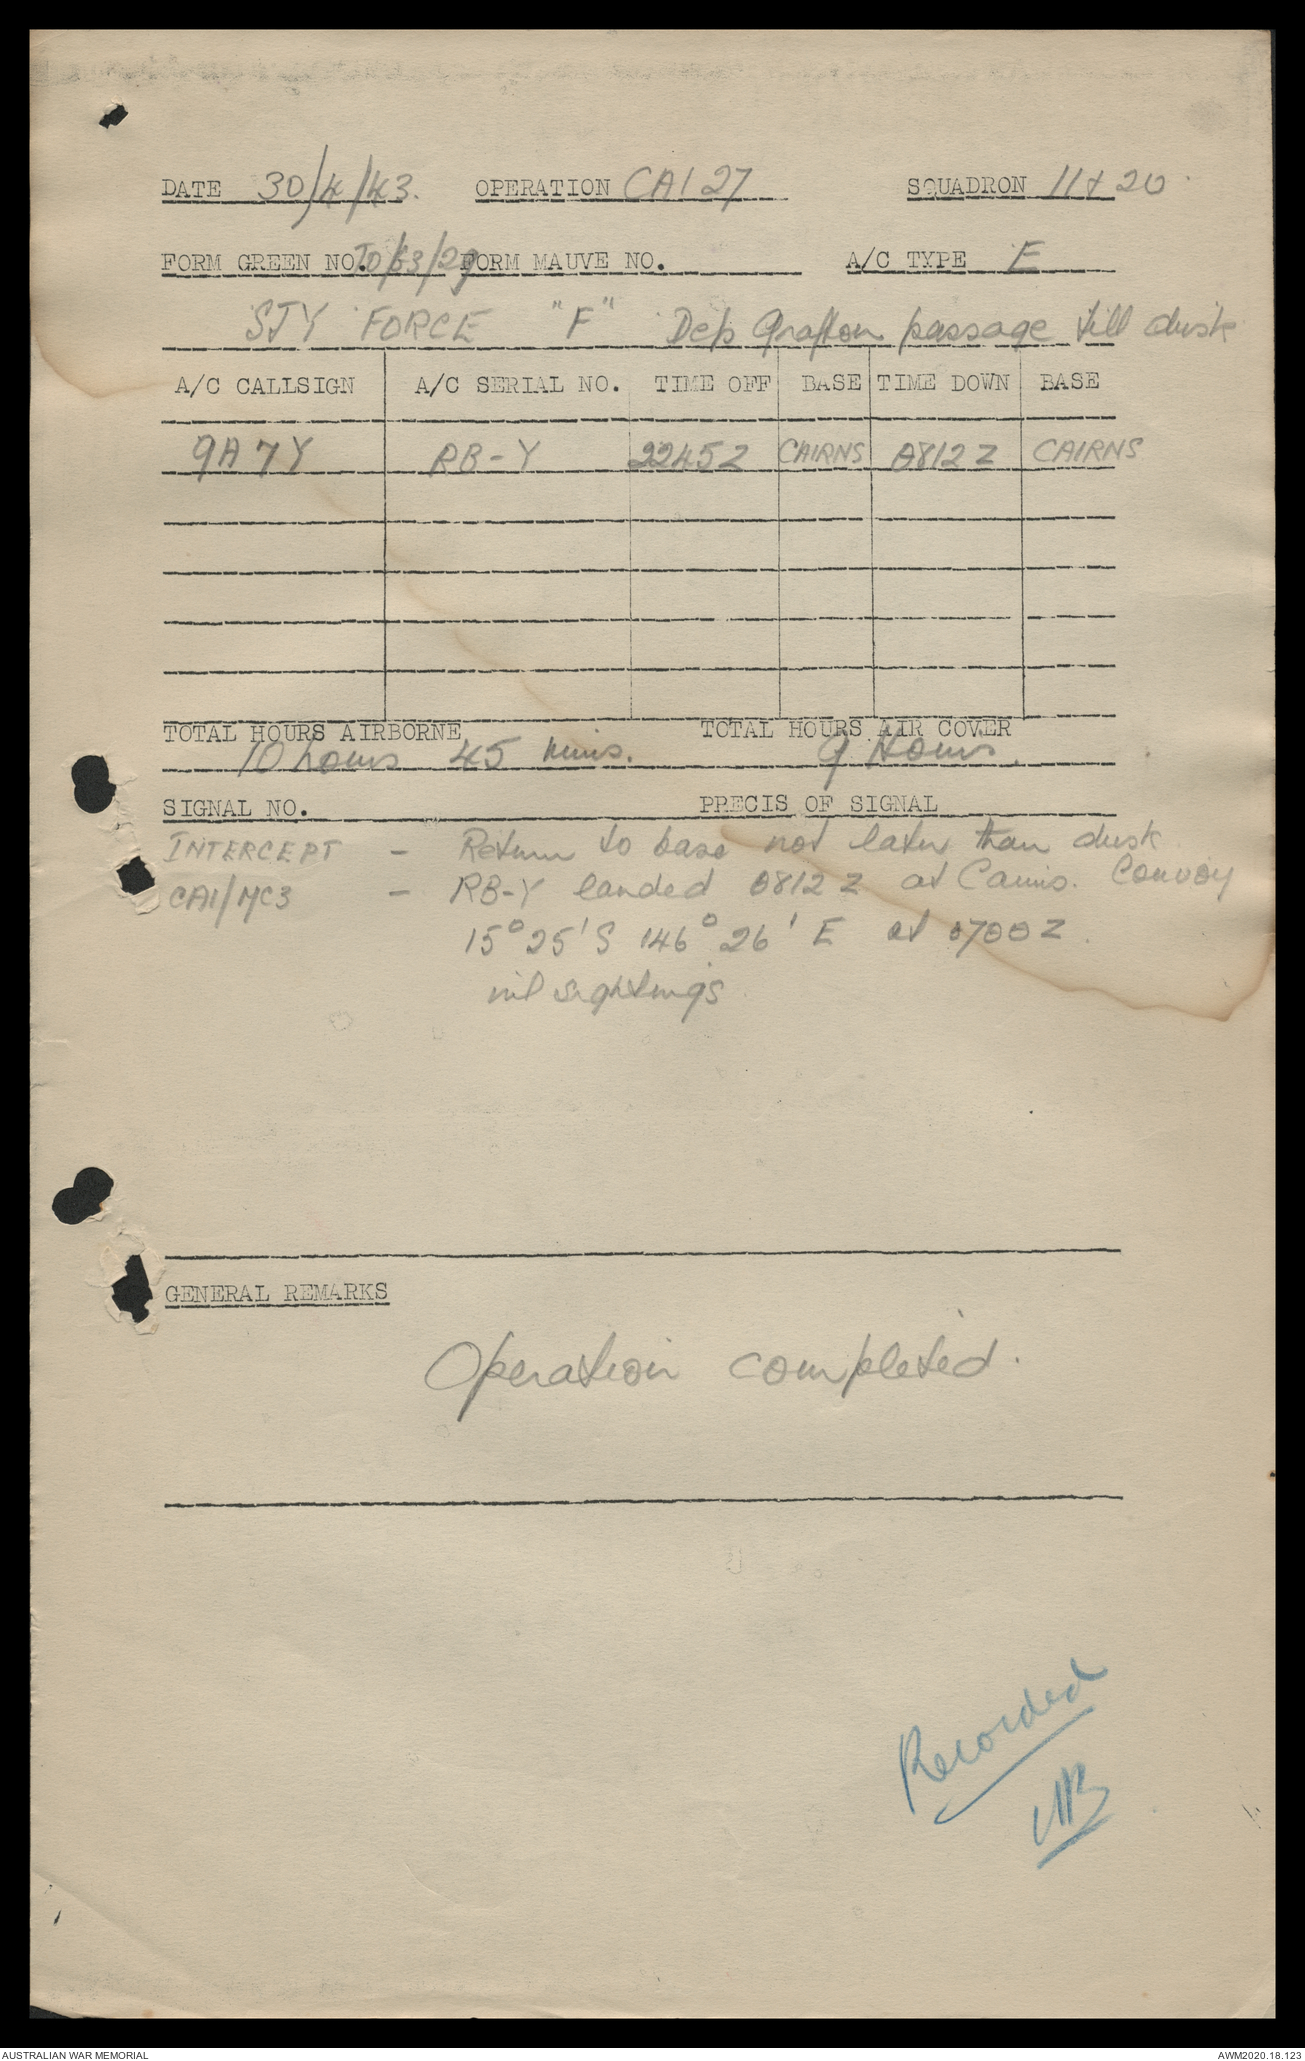 DATE 30/4/43. OPERATION CA1 27 SQUADRON 11 & 20
FORM GREEN NO. TO/63/29 FORM MAUVE NO. A/C TYPE E
STY FORCE "F" Dep Grafton passage till dusk
A/C CALLSIGN A/C SERIAL NO. TIME OFF BASE TIME DOWN BASE
9A7Y RB-Y 2245Z CAIRNS 0812Z CAIRNS
TOTAL HOURS AIRBORNE TOTAL HOURS AIR COVER
10 hours 45 mins. 9 Hours.
SIGNAL NO. PRECIS OF SIGNAL
INTERCEPT - Return to base not later than dusk
CA1/MC3 - RB-Y landed 0812 Z at Cairns. Convoy
15° 25' S 146° 26' E at 0700Z.
nil sightings
GENERAL REMARKS
Operation completed.
Recorded
AUSTRALIAN WAR MEMORIAL AWM2020.18.123